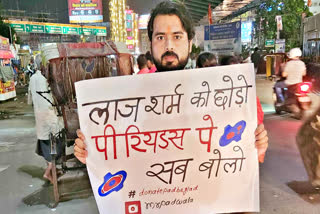 लाज शर्म को छोड़ो
पीरियडस पे
सब बोलो
#donatepadbajpad
mrpadwala